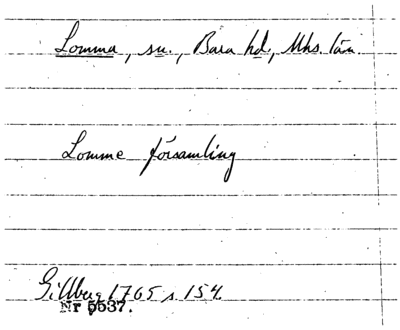 Lomma, sn., Bara hd., Mhs. län.
Lomme församling
Gillberg 1765 s. 154.
Nr 5537.